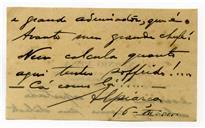 e grande admirador, que é o
Avante meu grande chefe!
Nem calcula quanto
aqui tenho soffrido!....
Ca como lá.....